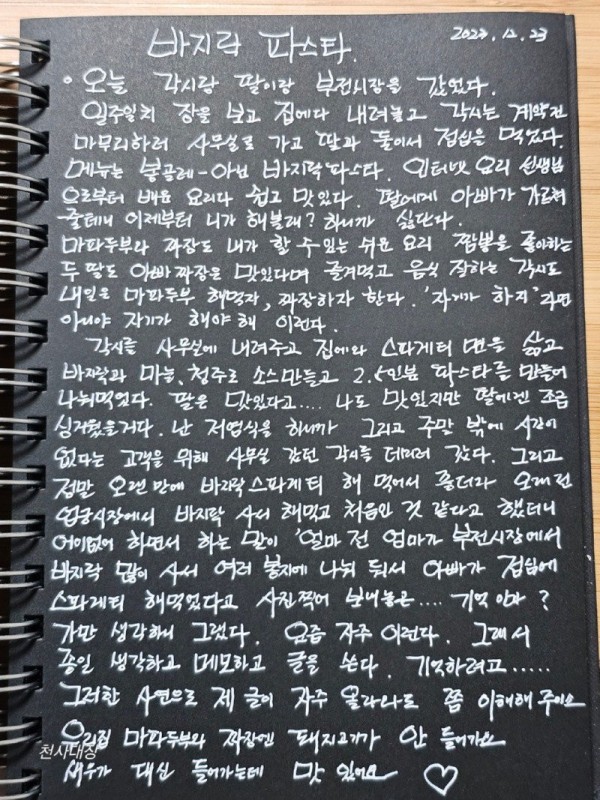 바지락 파스타. 2023. 12. 23
• 오늘 각시랑 딸이랑 부전시장을 갔었다.
일주일치 장을 보고 집에다 내려놓고 각시는 계약건
마무리하러 사무실로 가고 딸과 둘이서 점심을 먹었다.
메뉴는 봉골레-아닌 바지락파스타. 인터넷 요리 선생님
으로부터 배운 요리다 쉽고 맛있다. 딸에게 아빠가 가르쳐
줄테니 이제부터 니가 해볼래? 하니까 싫단다.
마파두부와 짜장도 내가 할 수 있는 쉬운 요리 짬뽕을 좋아하는
두 딸도 아빠 짜장은 맛있다며 즐겨먹고 음식 잘하는 각시도
내일은 마파두부 해먹자, 짜장하자 한다. '자기가 하지' 라면
아니야 자기가 해야 해 이런다.
각시를 사무실에 내려주고 집에와 스파게티 면을 삶고
바지락과 마늘, 청주로 소스만들고 2.5인분 파스타를 만들어
나눠먹었다. 딸은 맛있다고.... 나도 맛있지만 딸에겐 조금
싱거웠을거다. 난 저염식을 하니까 그리고 주말 밖에 시간이
없다는 고객을 위해 사무실 갔던 각시를 데리러 갔다. 그리고
정말 오랜만에 바지락스파게티 해 먹어서 좋더라 오래전
엄궁시장에서 바지락 사서 해먹고 처음인 것 같다고 했더니
어이없어 하면서 하는 말이 '얼마 전 엄마가 부전시장에서
바지락 많이 사서 여러 봉지에 나눠 둬서 아빠가 점심에
스파게티 해먹었다고 사진찍어 보내놓곤.... 기억 안나?
가만 생각하니 그랬다. 요즘 자주 이런다. 그래서
종일 생각하고 메모하고 글을 쓴다. 기억하려고......
그러한 사연으로 제 글이 자주 올라와도 쫌 이해해 주이소
우리집 마파두부와 짜장엔 돼지고기가 안 들어가요
새우가 대신 들어가는데 맛 있어요 ♡
천사대장